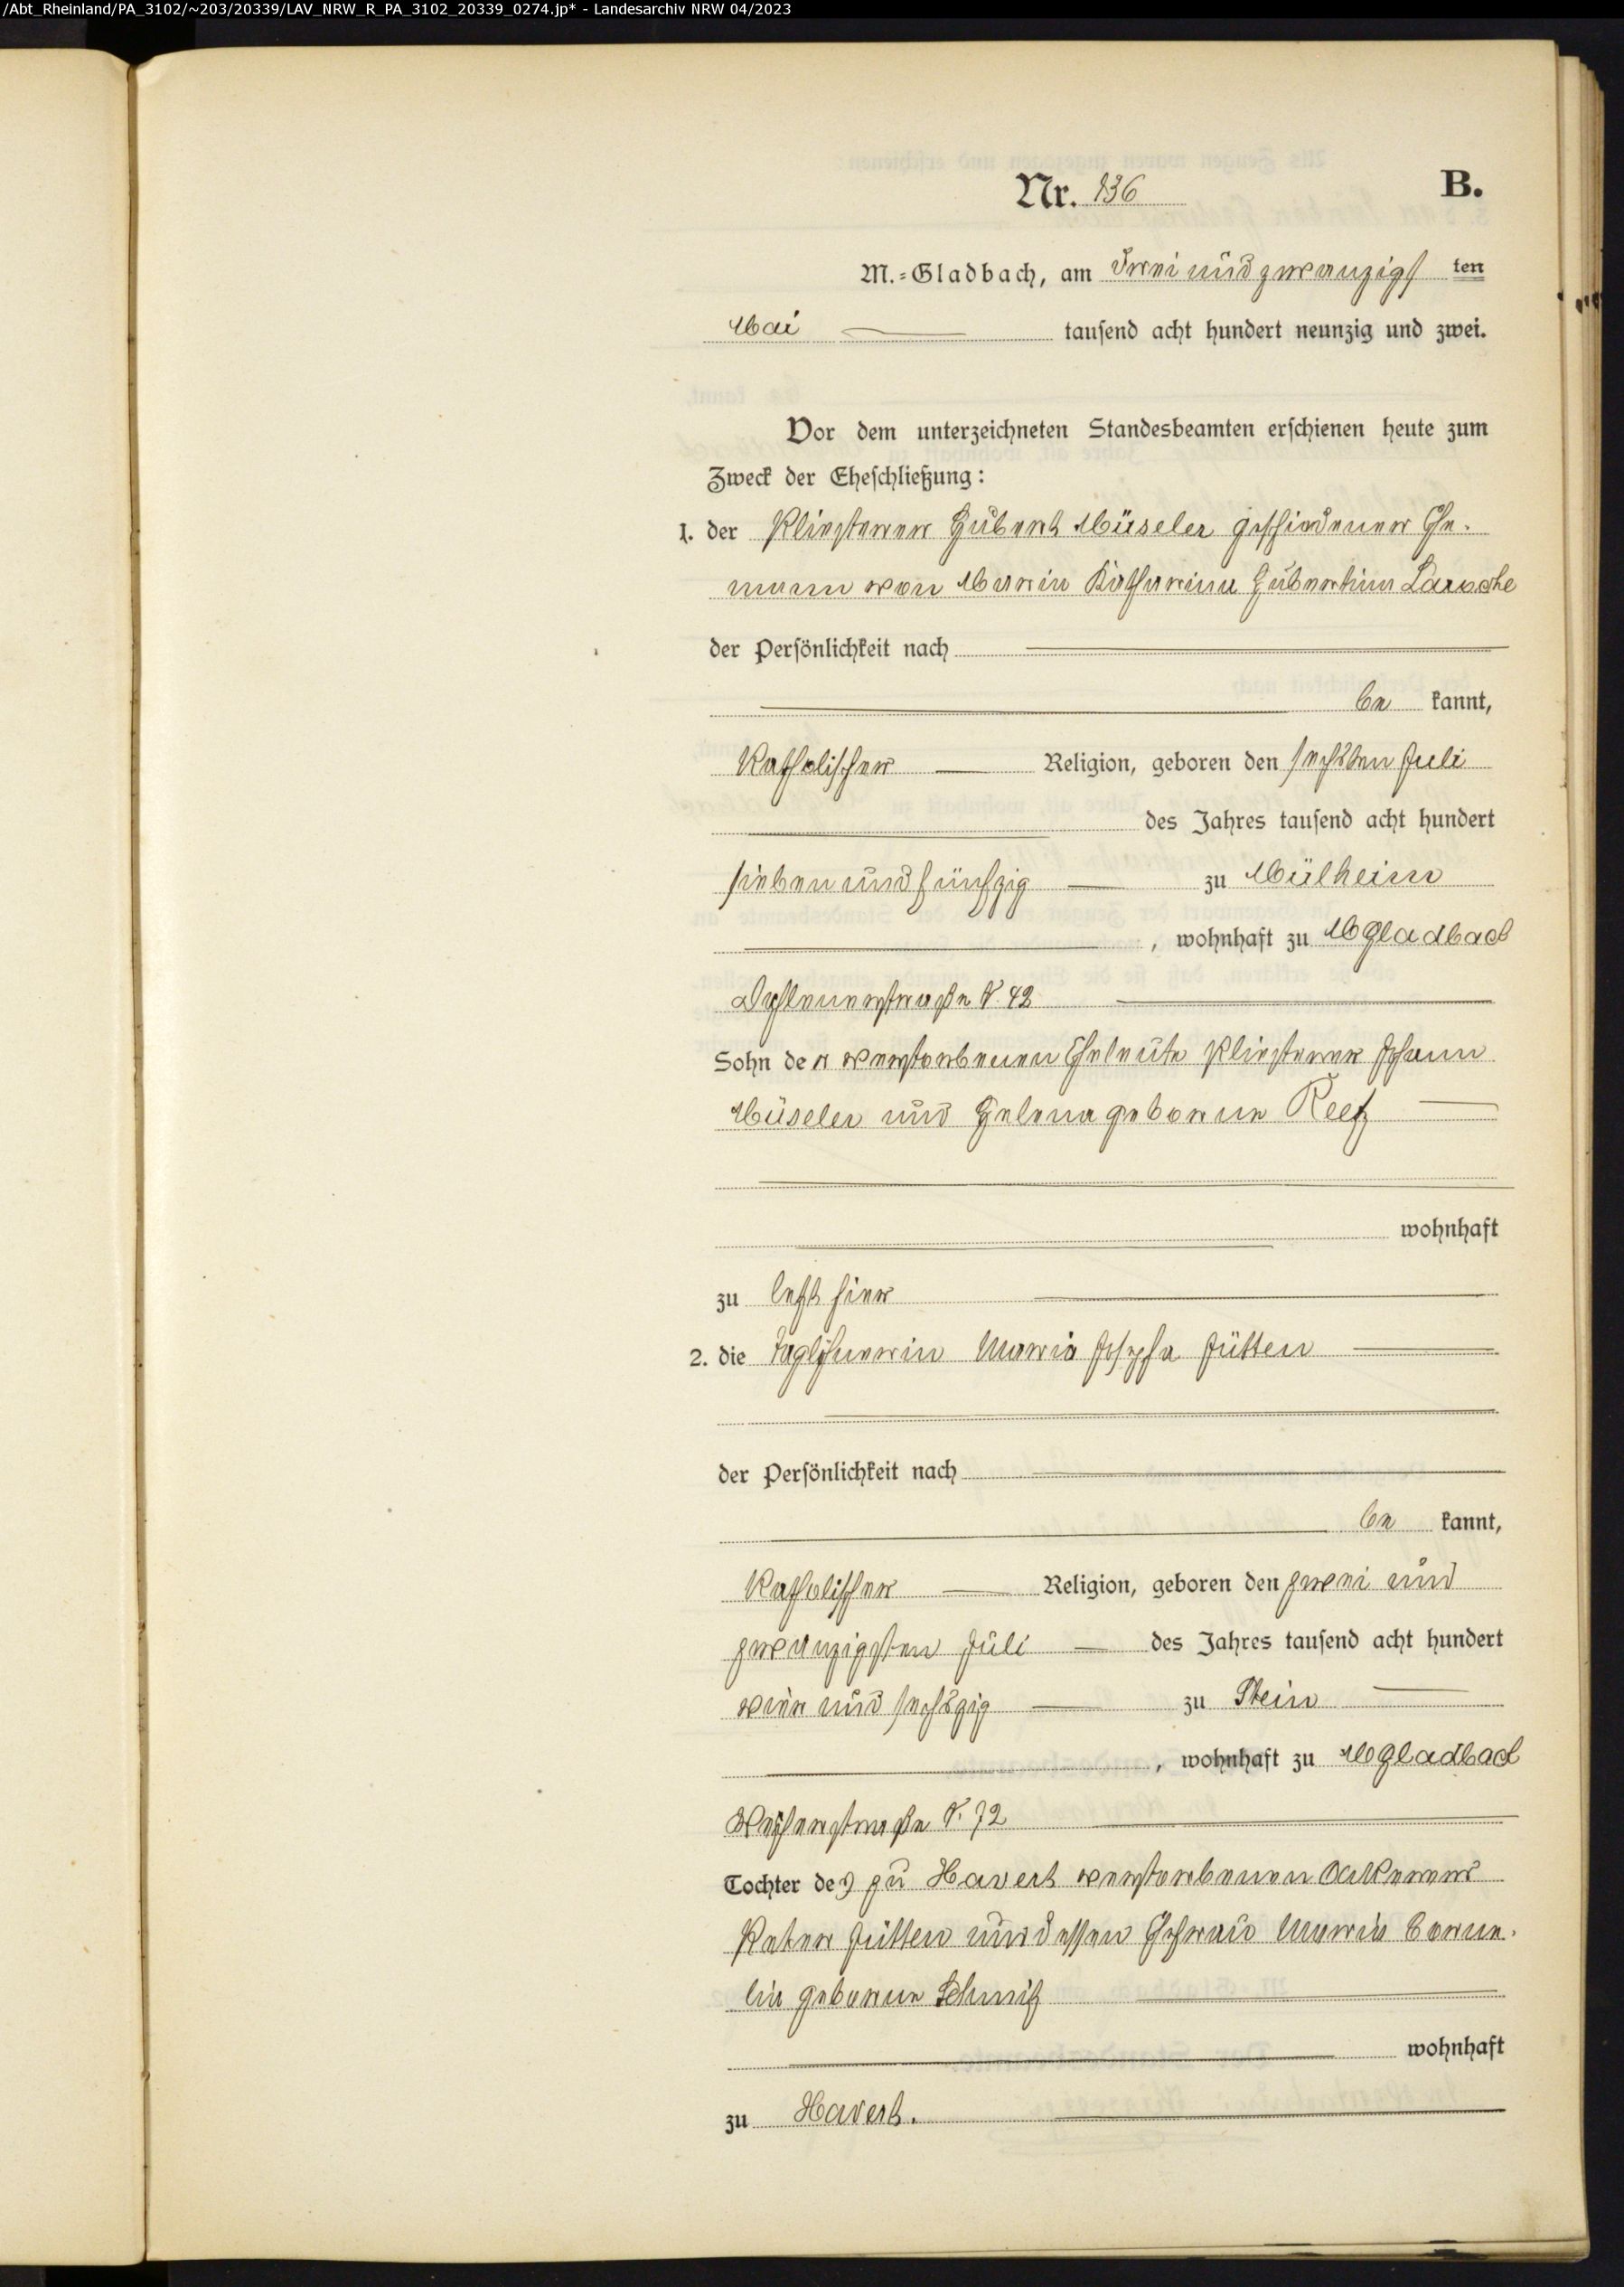 /Abt_Rheinland/PA_3102/~203/20339/LAV_NRW_R_PA_3102_20339_0274.jp* - Landesarchiv NRW 04/2023
Nr. 136
B.
M.=Gladbach, am drei und zwanzigsten
Mai tausend acht hundert neunzig und zwei.
Vor dem unterzeichneten Standesbeamten erschienen heute zum
Zweck der Eheschließung:
1. der Pliesterer Hubert Müseler geschiedener Ehe-
mann von Maria Katharina Hubertina Laroche
der Persönlichkeit nach
be kannt,
Katholischer Religion, geboren den sechsten Juli
des Jahres tausend acht hundert
sieben und fünfzig zu Mülheim
, wohnhaft zu MGladbach
42
Sohn der verstorbenen Eheleute Pliesterer Johann
Müseler und Helena geborene Reetz
wohnhaft
zu letzt hier
2. die Taglöhnerin Maria Josepha Jütten
der Persönlichkeit nach
be kannt,
Katholischer Religion, geboren den zwei und
zwanzigsten Juli des Jahres tausend acht hundert
vier und sechszig zu Stein
, wohnhaft zu MGladbach
Weiherstraße N. 72
Tochter des zu Havert verstorbenen Ackerers
Peter Jütten und dessen Ehefrau Maria Corne-
lia geborene Schmitz
wohnhaft
zu Havert.